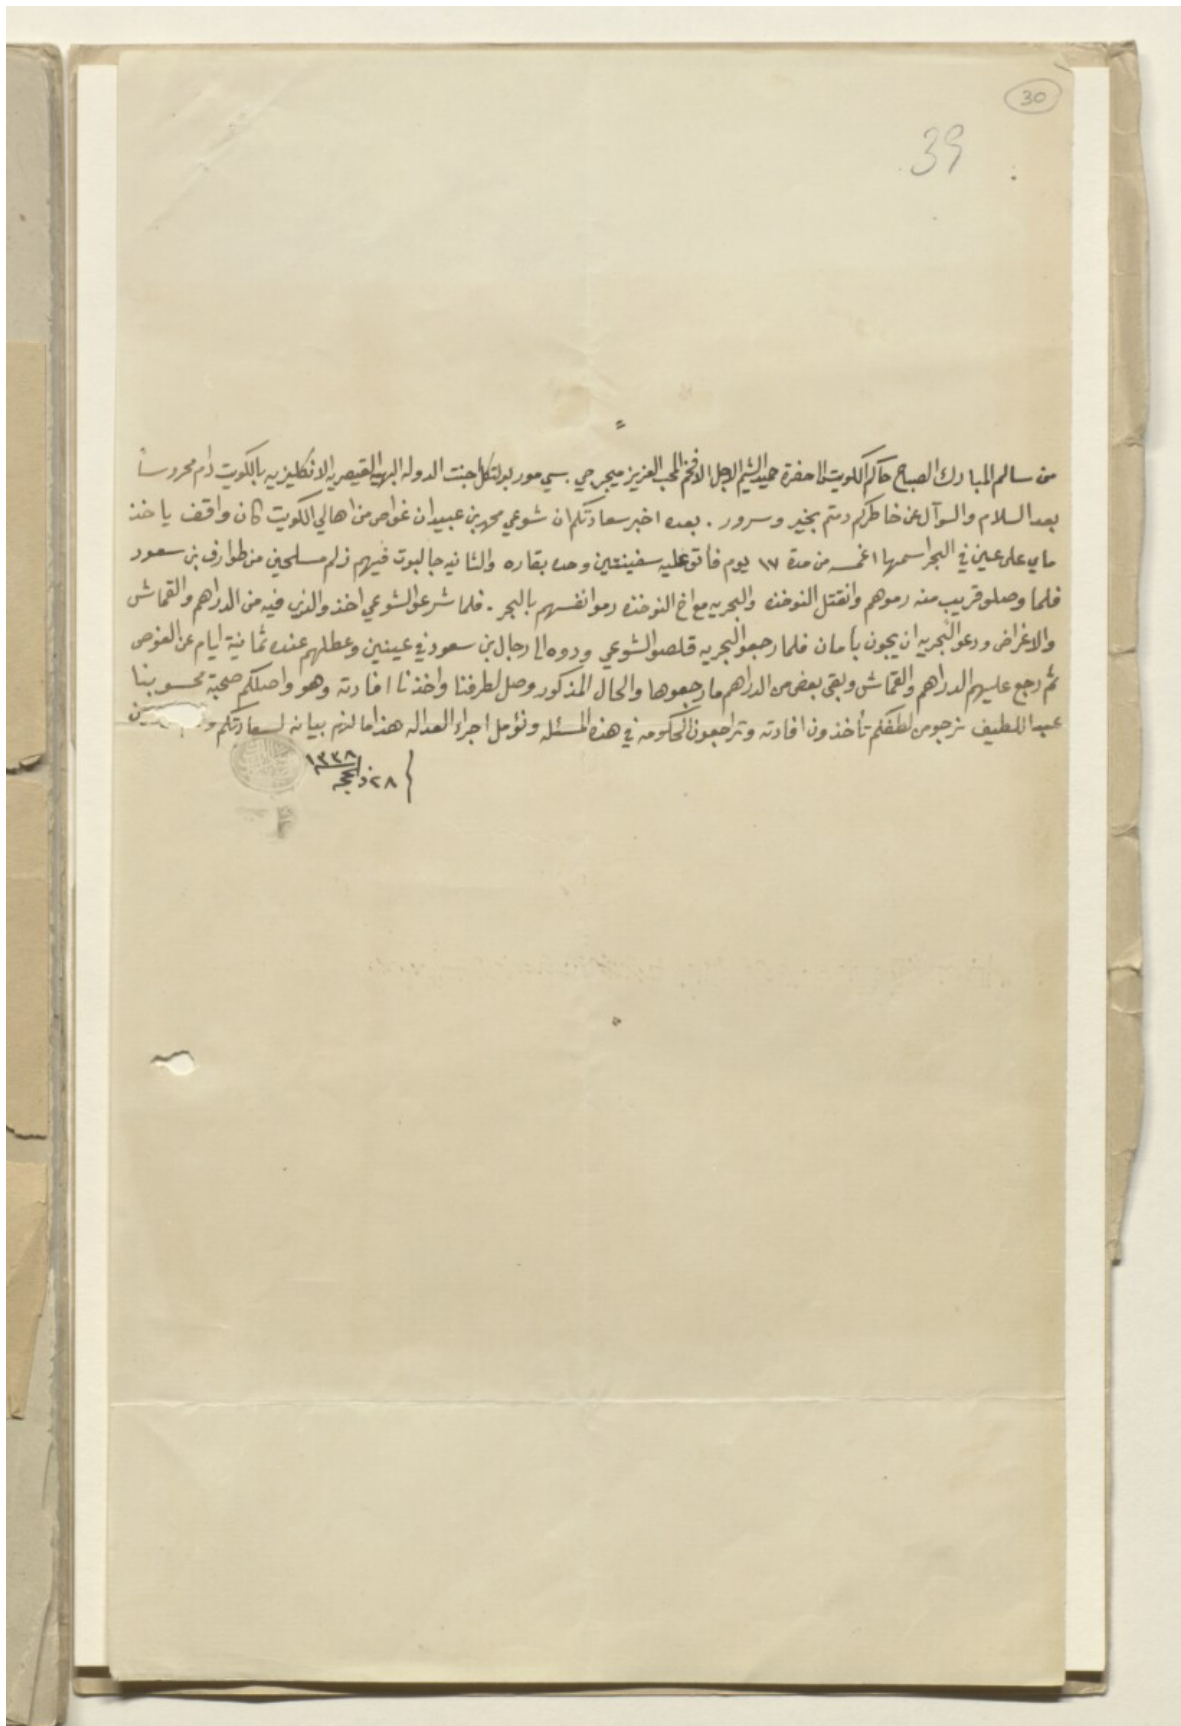 30
39
من سالم المبارك الصباح حاكم الكويت الى حضرة حميد الشيم الاجل الافخم المحب العزيز ميجر جي سي مور بولتكل اجنت الدوله البهيه القيصريه الانكليزيه بالكويت دام محروساً
بعد السلام والسوآل عن خاطركم دمتم بخير وسرور . بعده اخبر سعادتكم ان شوعي محمد بن عبيدان غواص من اهالي الكويت كان واقف ياخذ
ماي على عين في البحر اسمها اغمسه من مدة ١٧ يوم فأتو عليه سفينتين وحده بقاره والثانيه جالبوت فيهم زلم مسلحين من طوارف بن سعود
فلما وصلو قريب منه رموهم وانقتل النوخذه والبحريه مع اخ النوخذه رموا انفسهم بالبحر . فلما شرعو الشوعي اخذ والذي فيه من الدراهم والقماش
والاغراض ودعو البحريه ان يجون بأمان فلما رجعو البحريه قلصو الشوعي وردوه الى رجال بن سعود في عينين وعطلهم عنده ثمانية ايام عن الغوص
ثم رجع عليهم الدراهم والقماش وبقي بعض من الدراهم ما رجعوها والحال المذكور وصل لطرفنا واخذنا افادته وهو واصلكم صحبة محسوبنا
عبد اللطيف نرجو من لطفكم تأخذون افادته وتراجعون الحكومه في هذه المسئله ونؤمل اجراء العداله هذا ما لزم بيانه لسعادتكم
٢٨ ذالحجه ١٣٣٨